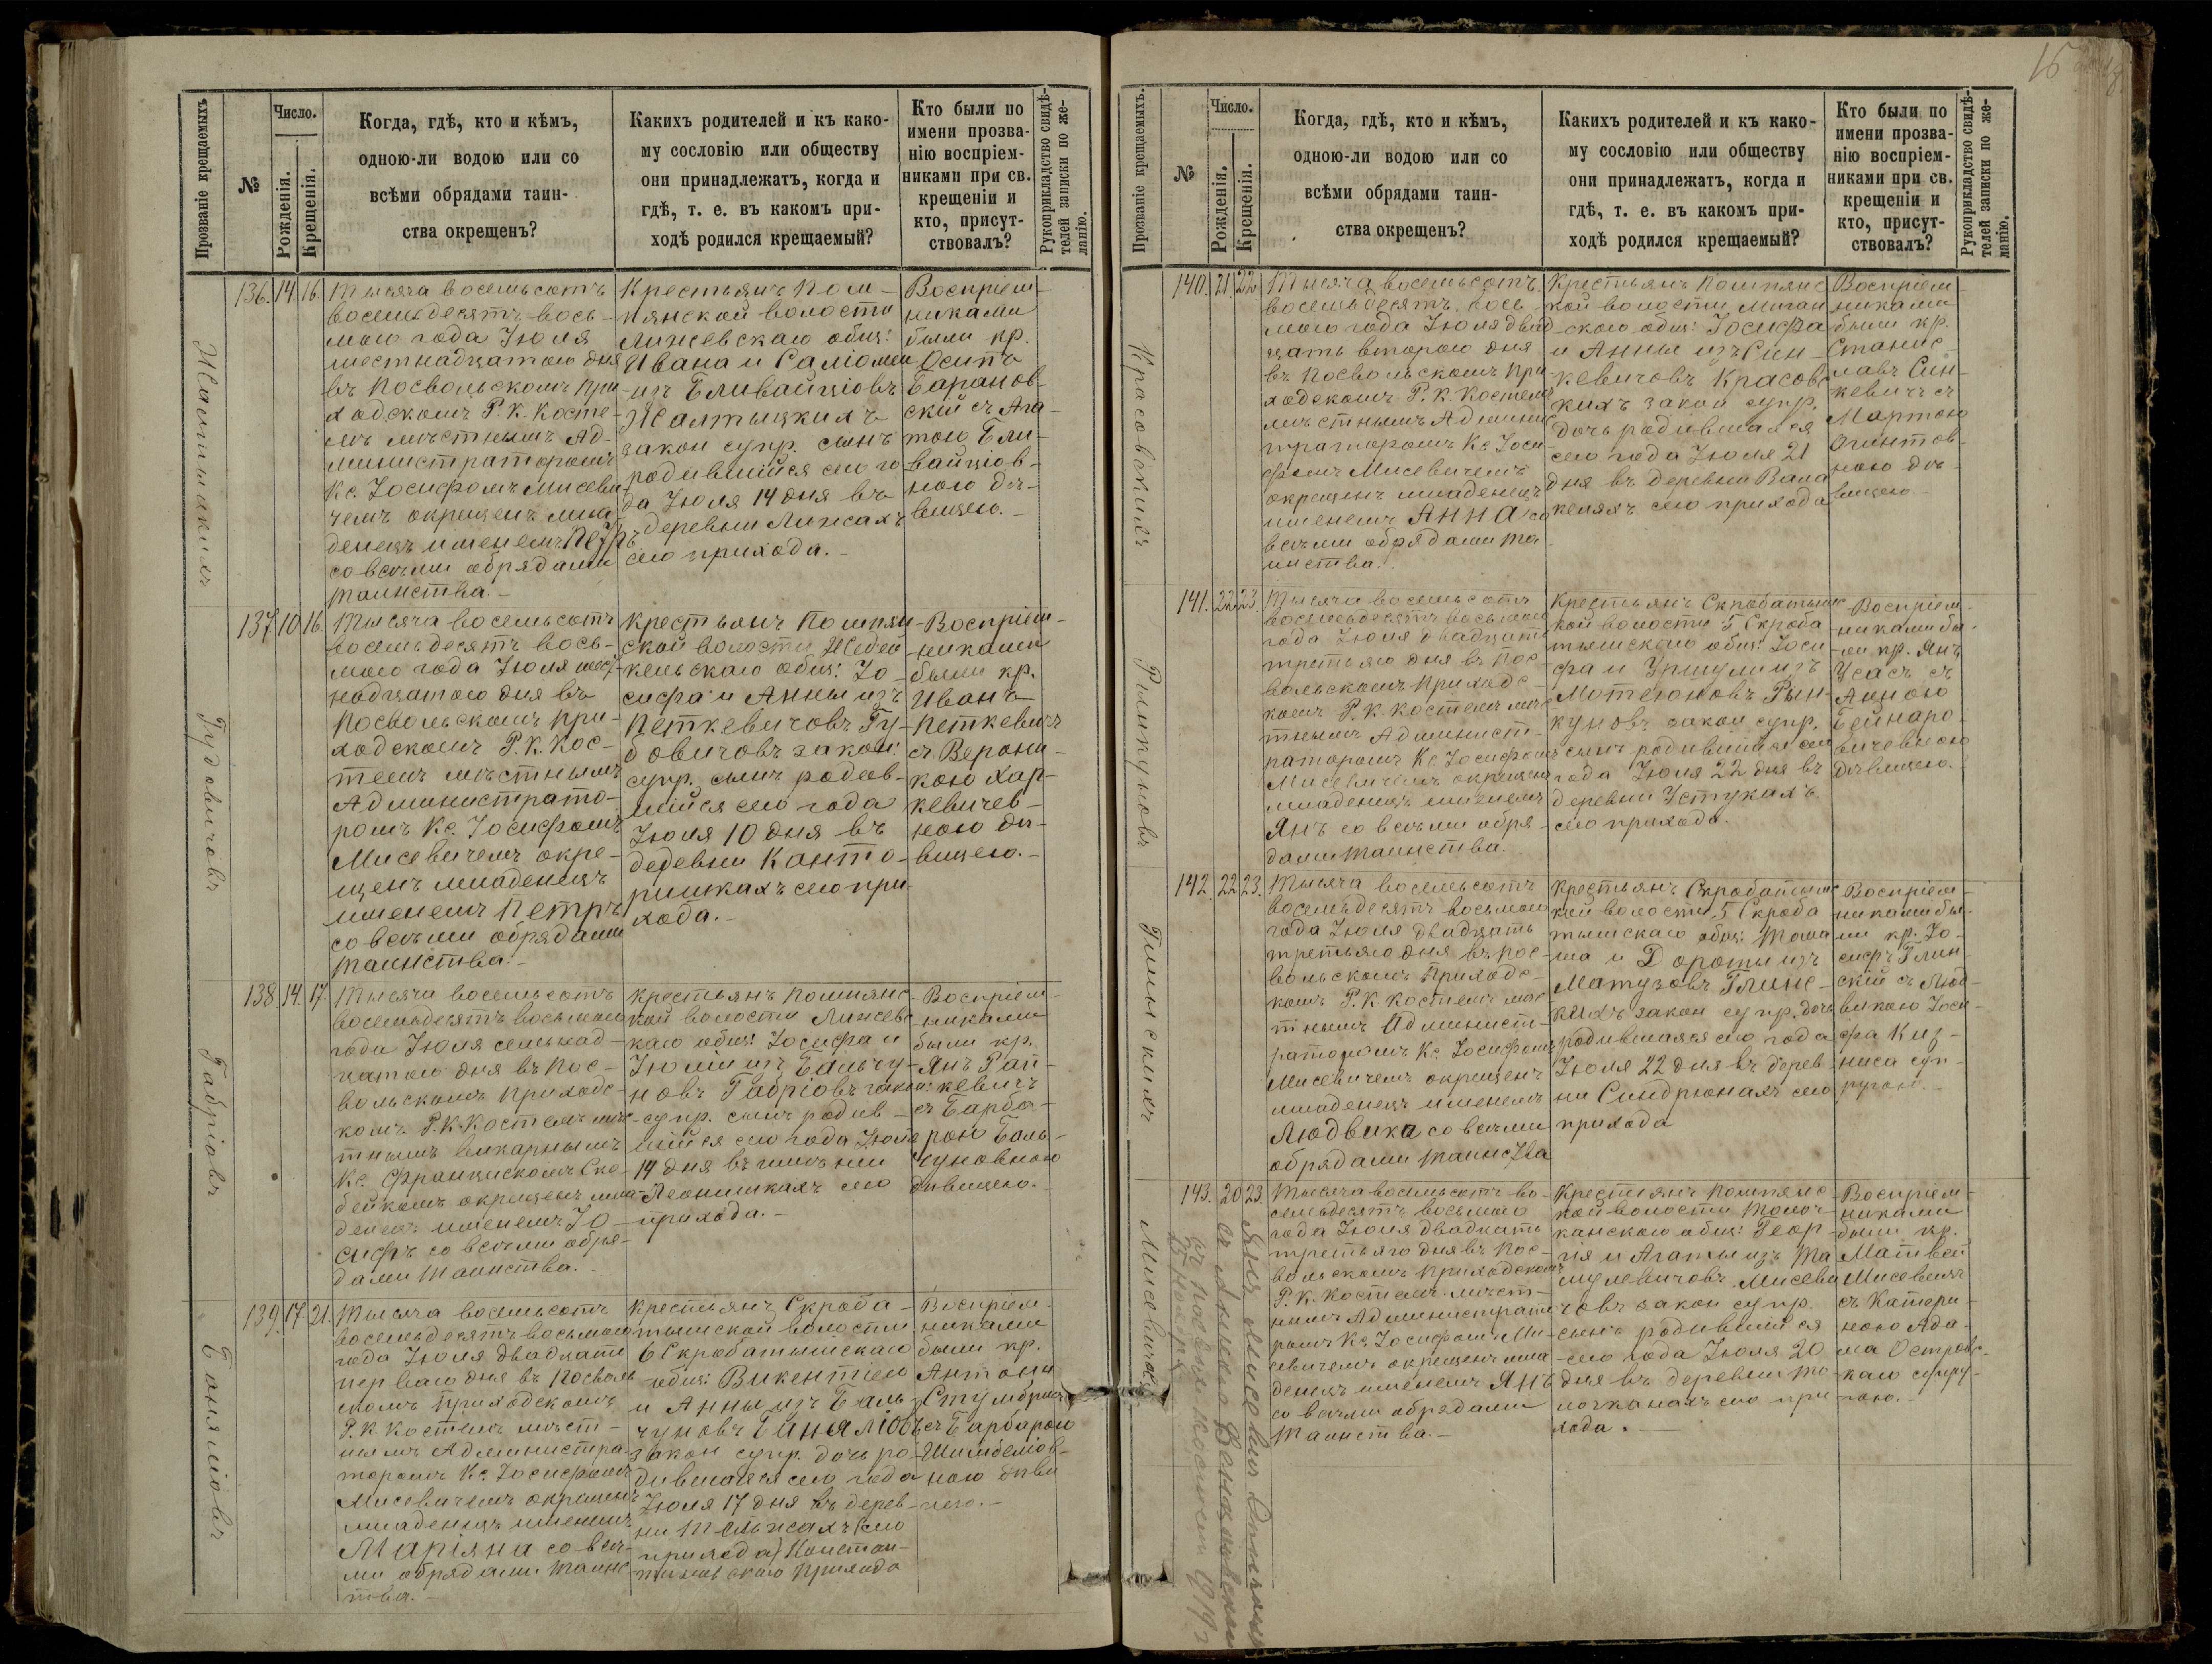 15
Прозваніе крещаемыхъ
№
Число.
Рожденія.
Крещенія.
Когда, гдѣ, кто и кѣмъ,
одною-ли водою или со
всѣми обрядами таин-
ства окрещенъ?
Какихъ родителей и къ како-
му сословію или обществу
они принадлежатъ, когда и
гдѣ, т. е. въ какомъ при-
ходѣ родился крещаемый?
Кто были по
имени прозва-
нію воспріем-
никами при св.
крещеніи и
кто, присут-
ствовалъ?
Рукоприкладство свидѣ-
телей записки по же-
ланію.
136. 14. 16.
Тысяча восемьсотъ
восемьдесятъ вось-
маго года Іюля
шестнадцатаго дня
въ Посвольскомъ при-
ходскомъ Р. К. Косте-
лѣ мѣстнымъ Ад-
министраторомъ
Кс. Іосифомъ Мисеви-
чемъ окрещенъ мла-
денецъ именемъ Петръ
со всѣми обрядами
таинства.
Крестьянъ Пом-
пянской волости
общ:
Ивана и Саломеи
изъ
закон супр. сынъ
родившійся сего го-
да Іюля 14 дня въ
деревни
сего прихода.
Воспріем-
никами
были кр.
Осипъ
Баранов-
скій съ Ага-
тою Бли-
вайціов-
ною дѣ-
вицею.
Гудовичовъ
137 10 16.
Тысяча восемьсотъ
восемьдесятъ вось-
маго года Іюля шест-
надцатаго дня въ
Посвольскомъ при-
ходскомъ Р. К. Кос-
телѣ мѣстнымъ
Администрато-
ромъ Кс. Іосифомъ
Мисевичемъ окре-
щенъ младенецъ
именемъ Петръ
со всѣми обрядами
таинства.
Крестьянъ Помпян-
ской волости
общ: Іо-
сифа и Анны изъ
Петкевичовъ Гу-
довичовъ закон:
супр. сынъ родив-
шійся сего года
Іюля 10 дня въ
деревни Канто-
ришкахъ сего при-
хода.
Воспріем-
никами
были кр.
Иванъ
Петкевичъ
съ Верони-
кою Хар-
кевичев-
ною дѣ-
вицею.
Габріовъ
138. 14. 17.
Тысяча восемьсотъ
восемьдесятъ восьмаго
года Іюля семнад-
цатаго дня въ Пос-
вольскомъ приходс-
комъ Р. К. Костелѣ мѣс-
тнымъ викарнымъ
Кс. Францискомъ Ске-
бейкомъ окрещенъ мла-
денецъ именемъ Іо-
сифъ со всѣми обря-
дами таинства.
Крестьянъ Помпянс-
кой волости
общ: Іосифа и
Юліи изъ Бальчу-
новъ Габріовъ закон:
супр. сынъ родив-
шійся сего года Іюля
14 дня въ имѣніи
Леонишкахъ сего
прихода.
Воспріем-
никами
были кр.
Янъ Рай-
кевичъ
съ Барба-
рою Баль-
чуновною
дѣвицею.
139. 17. 21.
Тысяча восемьсотъ
восемьдесятъ восьмаго
года Іюля двадцать
перваго дня въ Посволь-
скомъ приходскомъ
Р. К. Костелѣ мѣст-
нымъ Администра-
торомъ Кс. Іосифомъ
Мисевичемъ окрещенъ
младенецъ именемъ
Маріяна со всѣ-
ми обрядами таинс-
тва.
Крестьянъ Скроба-
тышской волости
6 Скробатышскаго
общ: Викентія
и Анны изъ Баль-
чуновъ
закон супр. дочь ро-
дившаяся сего года
Іюля 17 дня въ дерев-
ни
прихода) Констан-
тиновскаго прихода
Воспріем-
никами
были кр.
Антони
съ Барбарою
ною дѣви-
цею.
15
Прозваніе крещаемыхъ.
№
Число.
Рожденія.
Крещенія.
Когда, гдѣ, кто и кѣмъ,
одною-ли водою или со
всѣми обрядами таин-
ства окрещенъ?
Какихъ родителей и къ како-
му сословію или обществу
они принадлежатъ, когда и
гдѣ, т. е. въ какомъ при-
ходѣ родился крещаемый?
Кто были по
имени прозва-
нію воспріем-
никами при св.
крещеніи и
кто, присут-
ствовалъ?
Рукоприкладство свидѣ-
телей записки по же-
ланію.
Красовскихъ
140. 21. 22.
Тысяча восемьсотъ
восемьдесятъ вось-
маго года Іюля двад-
цать втораго дня
въ Посвольскомъ при-
ходскомъ Р. К. Костелѣ
мѣстнымъ Админис-
траторомъ Кс. Іоси-
фомъ Мисевичемъ
окрещенъ младенецъ
именемъ Анна со
всѣми обрядами та-
инства.
Крестьянъ Помпянс-
кой волости
общ: Іосифа
и Анны изъ Син-
кевичовъ Красовс-
кихъ закон супр.
дочь родившаяся
сего года Іюля 21
дня въ деревни
сего прихода
Воспріем-
никами
были кр.
Станис-
лавъ Син-
кевичъ съ
Мартою
ною дѣ-
вицею.
Рымкуновъ
141. 22. 23.
Тысяча восемьсотъ
восемьдесятъ восьмаго
года Іюля двадцать
третьяго дня въ Пос-
вольскомъ приходс-
комъ Р. К. Костелѣ мѣс-
тнымъ Админист-
раторомъ Кс. Іосифомъ
Мисевичемъ окрещенъ
младенецъ именемъ
Янъ со всѣми обря-
дами таинства.
Крестьянъ Скробатышс-
кой волости 5 Скроба-
тышскаго общ: Іоси-
фа и Уршули изъ
Мотеюновъ Рым-
куновъ закон супр.
сынъ родившійся сего
года Іюля 22 дня въ
деревни Устукахъ
сего прихода.
Воспріем-
никами бы-
ли кр. Янъ
съ
Анною
Бейнаро-
вичевною
дѣвицею.
Глинскихъ
142 22 23.
Тысяча восемьсотъ
восемьдесятъ восьмаго
года Іюля двадцать
третьяго дня въ Пос-
вольскомъ Приходс-
комъ Р. К. Костелѣ мѣс-
тнымъ Админист-
раторомъ Кс. Іосифомъ
Мисевичемъ окрещенъ
младенецъ именемъ
Людвика со всѣми
обрядами таинства
Крестьянъ Скробатышс-
кой волости, 5 Скроба-
тышскаго общ: Тома-
ша и Дороты изъ
Матузовъ Глинс-
кихъ закон супр. дочь
родившаяся сего года
Іюля 22 дня въ дерев-
ни Синдрюнахъ сего
прихода
Воспріем-
никами бы-
ли кр. Іо-
сифъ Глин-
скій съ Люд-
викою Іоси-
фа
суп-
ругою.
Мисевичовъ
143. 20 23
Тысяча восемьсотъ во-
семьдесятъ восьмаго
года Іюля двадцать
третьяго дня въ Пос-
вольскомъ приходскомъ
Р. К. Костелѣ мѣст-
нымъ Администрато-
ромъ Кс. Іосифомъ Ми-
севичемъ окрещенъ мла-
денецъ именемъ Янъ
со всѣми обрядами
таинства.
Крестьянъ Помпянс-
кой волости Толоч-
канскаго общ: Геор-
гія и Агаты изъ
Мисеви-
човъ закон супр.
сынъ родившійся
сего года Іюля 20
дня въ деревни То-
лочканахъ сего при-
хода.
Воспріем-
никами
были кр.
Матвей
Мисевичъ
съ Катери-
ною Ада-
ма Островс-
каго супру-
гою.
1919 г